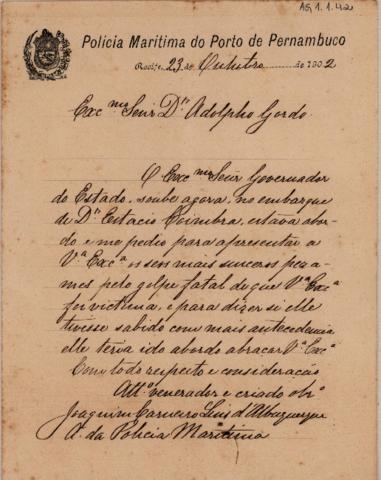 AG.1.1.42
Policia Maritima do Porto de Pernambuco
Recife, 23 de Outubro de 1902
Exc.mo Senr. Dr. Adolpho Gordo.
O Exc.mo Senr Governador
do Estado, soube agora, no embarque
de Dr. Estacio Coimbra, estava abor-
do e me pedio para apresentar a
V.ª Exc.ª os seus mais sinceros peza-
mes pelo golpe fatal de que V.ª Exc.ª
foi victima, e para dizer si elle
tivesse sabido com mais antecedencia
elle teria ido abordo abraçar V.ª Exc.ª
Com todo respeito e consideração
Att.º venerador e criado obr.º
Joaquim Carneiro Lins d'Albuquerque
A. da Policia Maritima